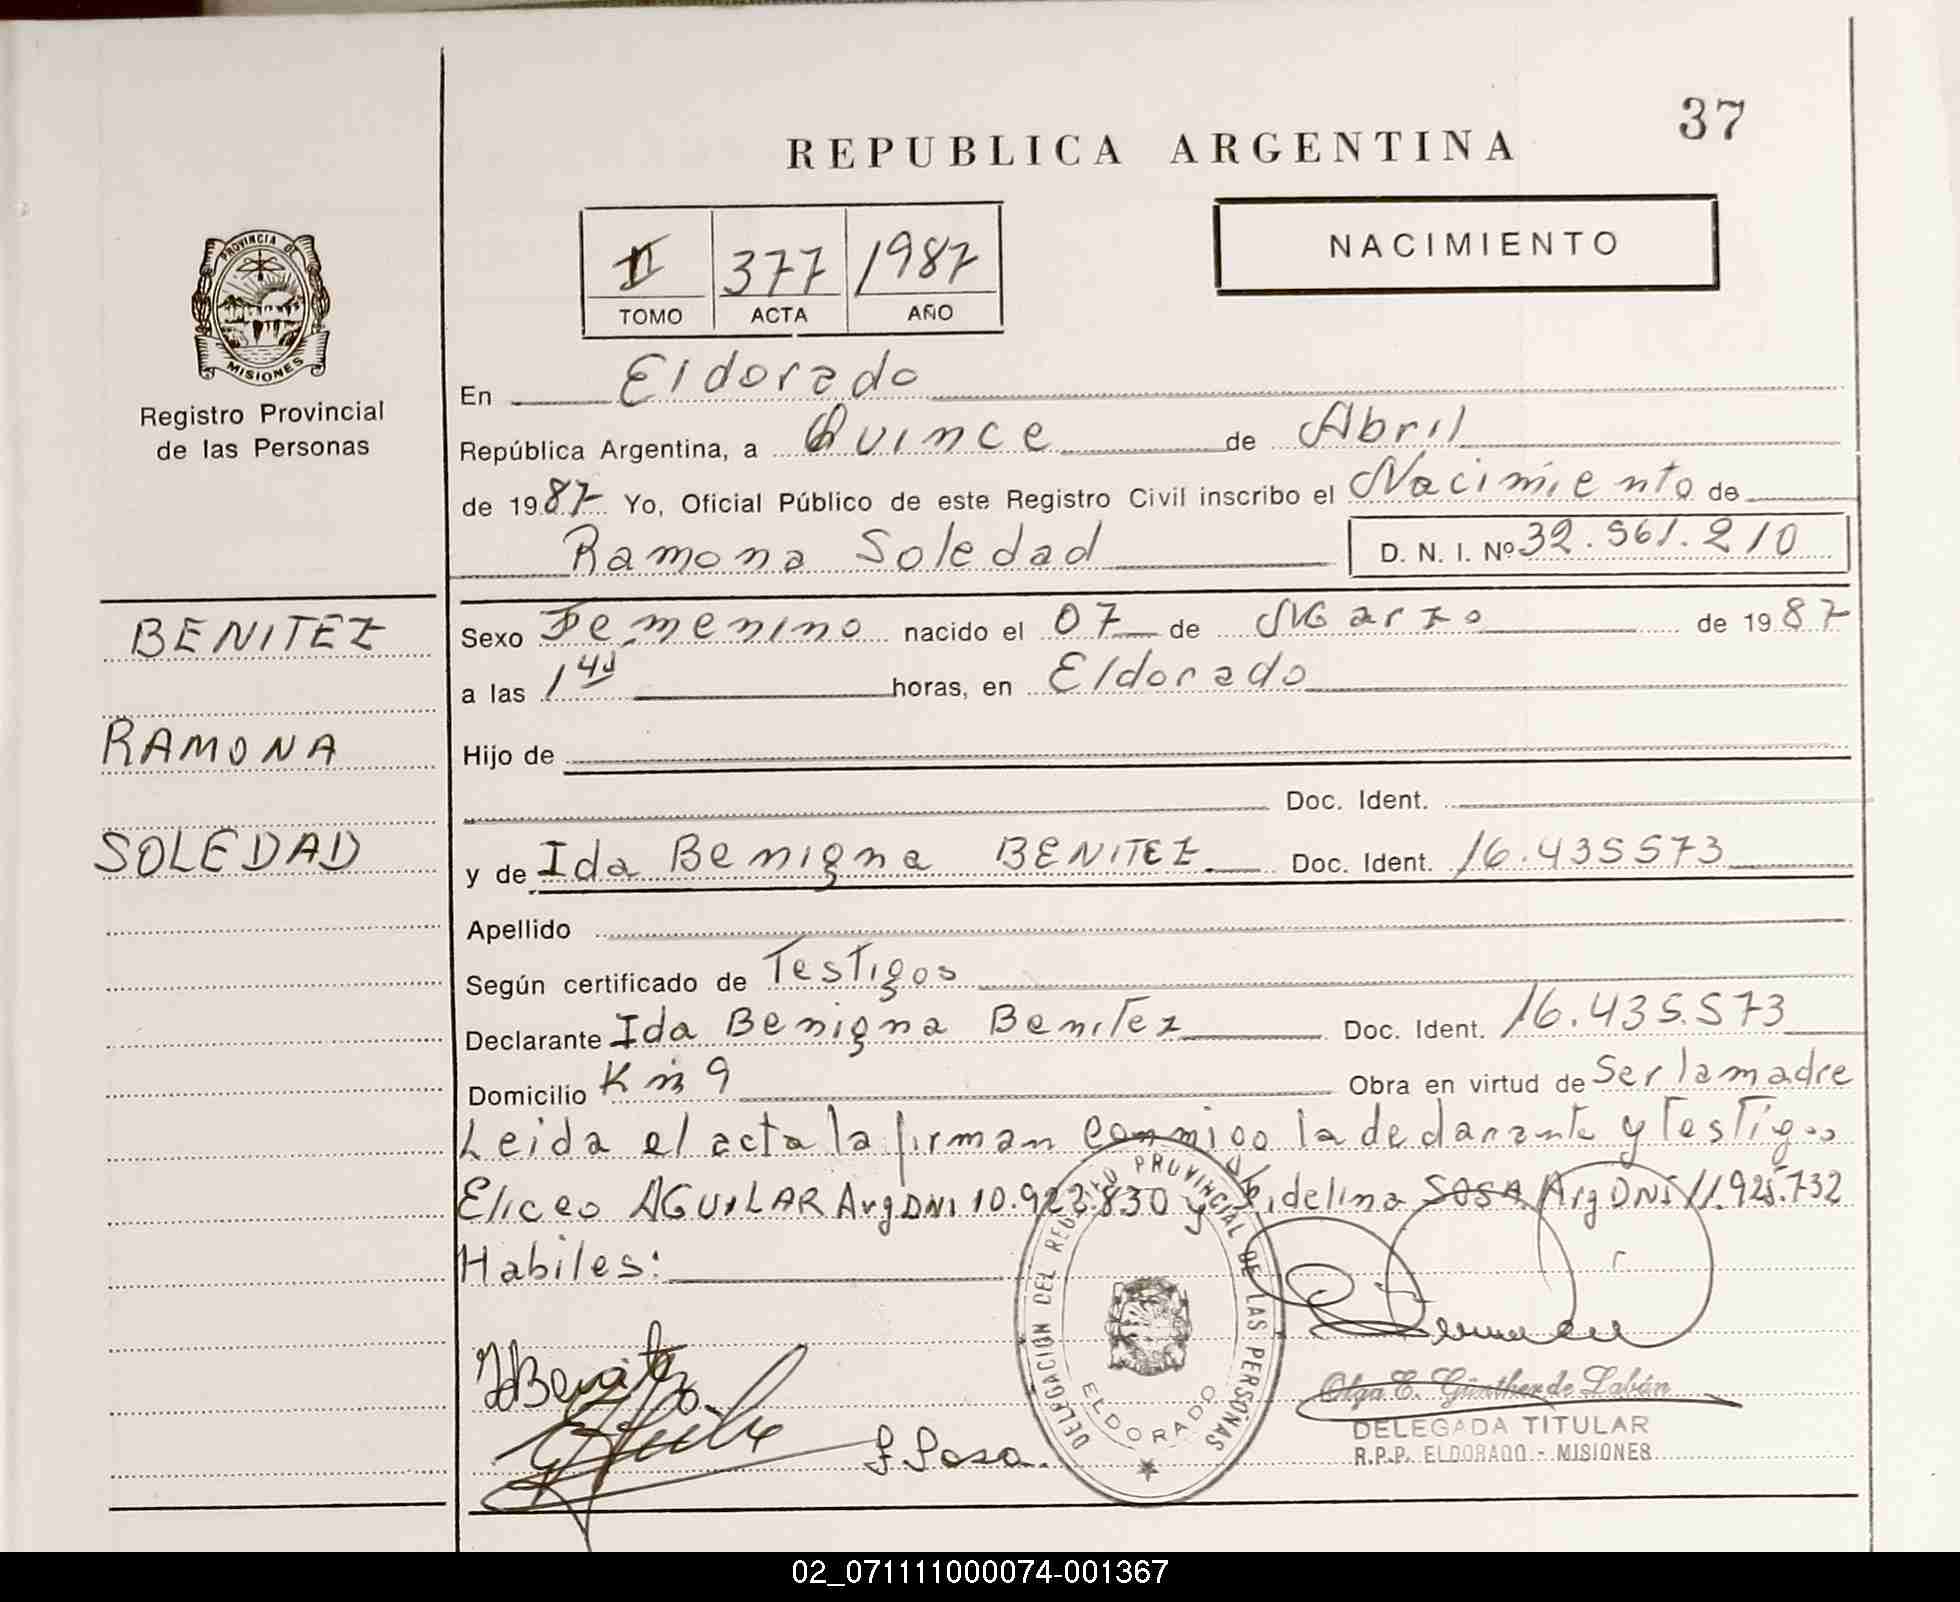 37
REPUBLICA ARGENTINA
NACIMIENTO
II 377 1987
TOMO ACTA AÑO
PROVINCIA DE
MISIONES
Registro Provincial
de las Personas
En Eldorado
República Argentina, a Quince de Abril
de 1987 Yo, Oficial Público de este Registro Civil inscribo el Nacimiento de
Ramona Soledad D. N. I. Nº 32.561.210
BENITEZ
RAMONA
SOLEDAD
Sexo Femenino nacido el 07 de Marzo de 1987
a las 1 45 horas, en Eldorado
Hijo de
Doc. Ident.
y de Ida Benigna BENITEZ Doc. Ident. 16.435573
Apellido
Según certificado de Testigos
Declarante Ida Benigna Benitez Doc. Ident. 16.435.573
Domicilio Km 9 Obra en virtud de Ser la madre
Leida el acta la firman conmigo la declarante y Testigos
Eliceo AGUILAR Arg DNI 10.923.830 y Fidelina SOSA Arg DNI 11.925.732
Habiles:
I Benitez
F Sosa.
DELEGACIÓN DEL REGISTRO PROVINCIAL DE LAS PERSONAS
ELDORADO
Olga E. Günther de Labán
DELEGADA TITULAR
R.P.P. ELDORADO - MISIONES
02_071111000074-001367